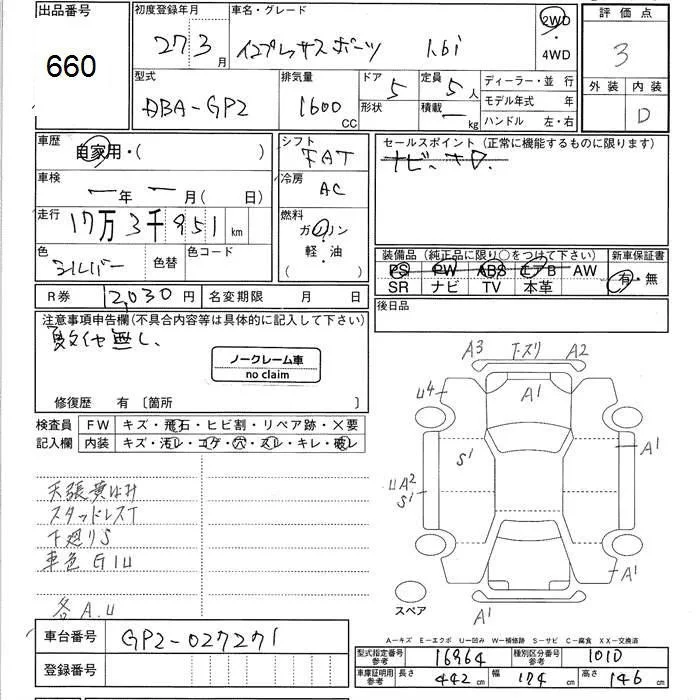 出品番号
660
初度登録年月
27 3 月
車名・グレード
インプレッサスポーツ 1.6i
2WD
・
4WD
評価点
3
外装 内装
D
型式
DBA-GP2
排気量
1600 CC
ドア 5
形状
定員 5 人
積載 ー kg
ディーラー・並行
モデル年式 年
ハンドル 左・右
車歴
自家用・( )
シフト
FAT
セールスポイント(正常に機能するものに限ります)
ナビ、
車検
ー年 ー月( 日)
冷房
AC
走行
17万3千951 km
燃料
ガソリン
軽・油
色
シルバー
色替
色コード
装備品(純正品に限り○をつけて下さい)
新車保証書
PS PW ABS エアB AW
SR ナビ TV 本革
有・無
R券
12,030円
名変期限 月 日
後日品
注意事項申告欄(不具合内容等は具体的に記入して下さい)
無し、
ノークレーム車
no claim
修復歴 有 〔箇所 〕
検査員
記入欄
FW キズ・飛石・ヒビ割・リペア跡・×要
内装 キズ・汚レ・コゲ・穴・スレ・キレ・破レ
天張黄ばみ
スタッドレスT
下廻りS
車色G1U
各A.U
A3 T-スリ A2
U4
A1
A1
S1
UA2
S1
A1
A1
スペア
A-キズ E-エクボ U-凹み W-補修跡 S-サビ C-腐食 XX-交換済
車台番号
GP2-027271
登録番号
型式指定番号
参考
16964
種別区分番号
参考
1010
車庫証明用
参考
長さ 442 cm
幅 174 cm
高さ 146 cm